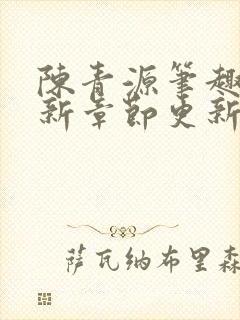 陳青源筆趣
新章節更新
萨瓦纳布里森